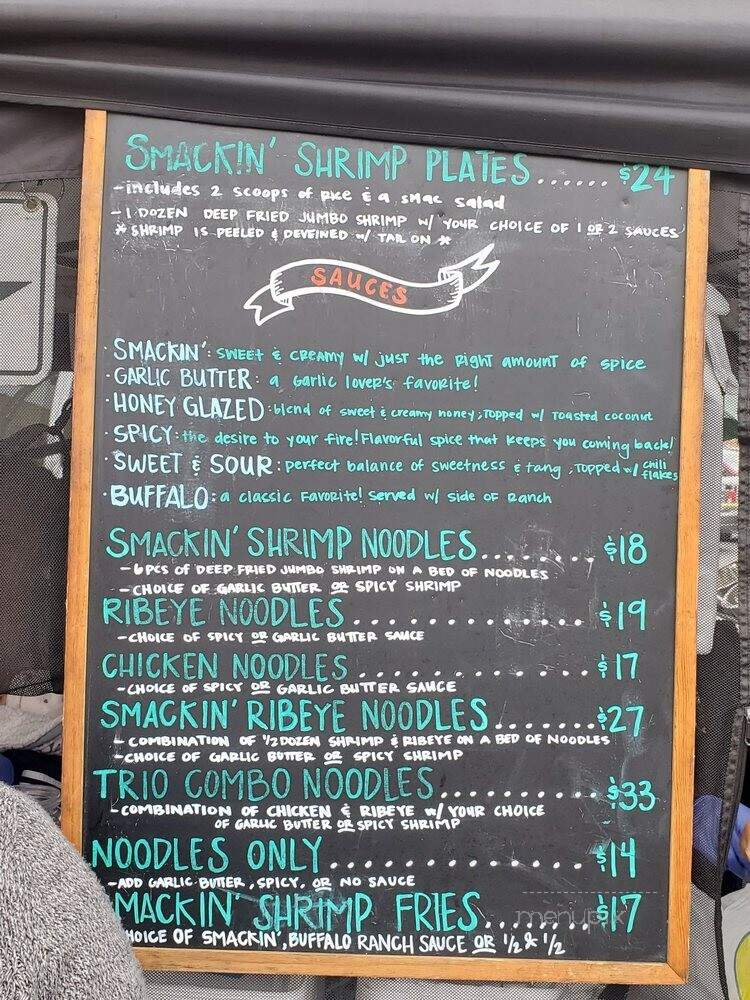 SMACKIN' SHRIMP PLATES...... $24
-includes 2 scoops of rice & a smac salad
-1 DOZEN DEEP FRIED JUMBO SHRIMP w/ YOUR CHOICE OF 1 OR 2 SAUCES
* SHRIMP IS PEELED & DEVEINED w/ TAIL ON *
SAUCES
· SMACKIN': SWEET & CREAMY w/ just the right amount of spice
· GARLIC BUTTER: a garlic lover's favorite!
· HONEY GLAZED: blend of sweet & creamy honey; Topped w/ Toasted coconut
SPICY: the desire to your fire! Flavorful spice that keeps you coming back!
· SWEET & SOUR: perfect balance of sweetness & tang; Topped w/ chili flakes
· BUFFALO: a classic favorite! served w/ side of ranch
SMACKIN' SHRIMP NOODLES.......... $18
-6 PCS OF DEEP FRIED JUMBO SHRIMP ON A BED OF NOODLES
-CHOICE OF GARLIC BUTTER OR SPICY SHRIMP
RIBEYE NOODLES................ $19
-CHOICE OF SPICY OR GARLIC BUTTER SAUCE
CHICKEN NOODLES............... $17
-CHOICE OF SPICY OR GARLIC BUTTER SAUCE
SMACKIN' RIBEYE NOODLES....... $27
-COMBINATION OF 1/2 DOZEN SHRIMP & RIBEYE ON A BED OF NOODLES
-CHOICE OF GARLIC BUTTER OR SPICY SHRIMP
TRIO COMBO NOODLES............ $33
-COMBINATION OF CHICKEN & RIBEYE w/ YOUR CHOICE
OF GARLIC BUTTER OR SPICY SHRIMP
NOODLES ONLY................. $14
-ADD GARLIC BUTTER, SPICY, OR NO SAUCE
MACKIN' SHRIMP FRIES........ $17
HOICE OF SMACKIN', BUFFALO RANCH SAUCE OR 1/2 & 1/2
menupix